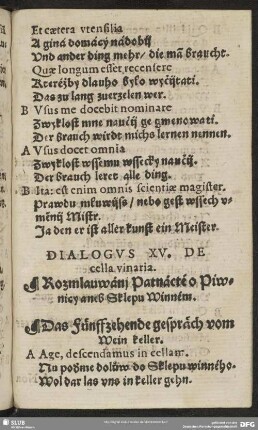 Et cætera vtensilia
A giná domácý nádobij
Vnd ander ding mehr/ die mã braucht.
Quæ longum esset recensere
Kteréžby dlauho bylo wyčjtati.
Das zu lang zuerzelen wer.
B Vsus me docebit nominare
Zwyklost mne naučij ge gmenowati.
Der brauch wirdt michs lernen nennen.
A Vsus docet omnia
Zwyklost wssemu wssecky naučij.
Der brauch leret alle ding.
B Ita: est enim omnis scientiæ magister.
Prawdu mluwijss/ nebo gest wssech v-
měnij Mistr.
Ja den er ist aller kunst ein Meister.
DIALOGVS XV. DE
cella vinaria.
¶ Rozmlauwánj Patnácté o Piw-
nicy aneb Sklepu Winném.
¶ Das Fünffzehende gespräch vom
Wein keller.
A Age, descendamus in cellam.
Nu poďme dolůw do Sklepu winného.
Wol dar las vns in keller gehn.